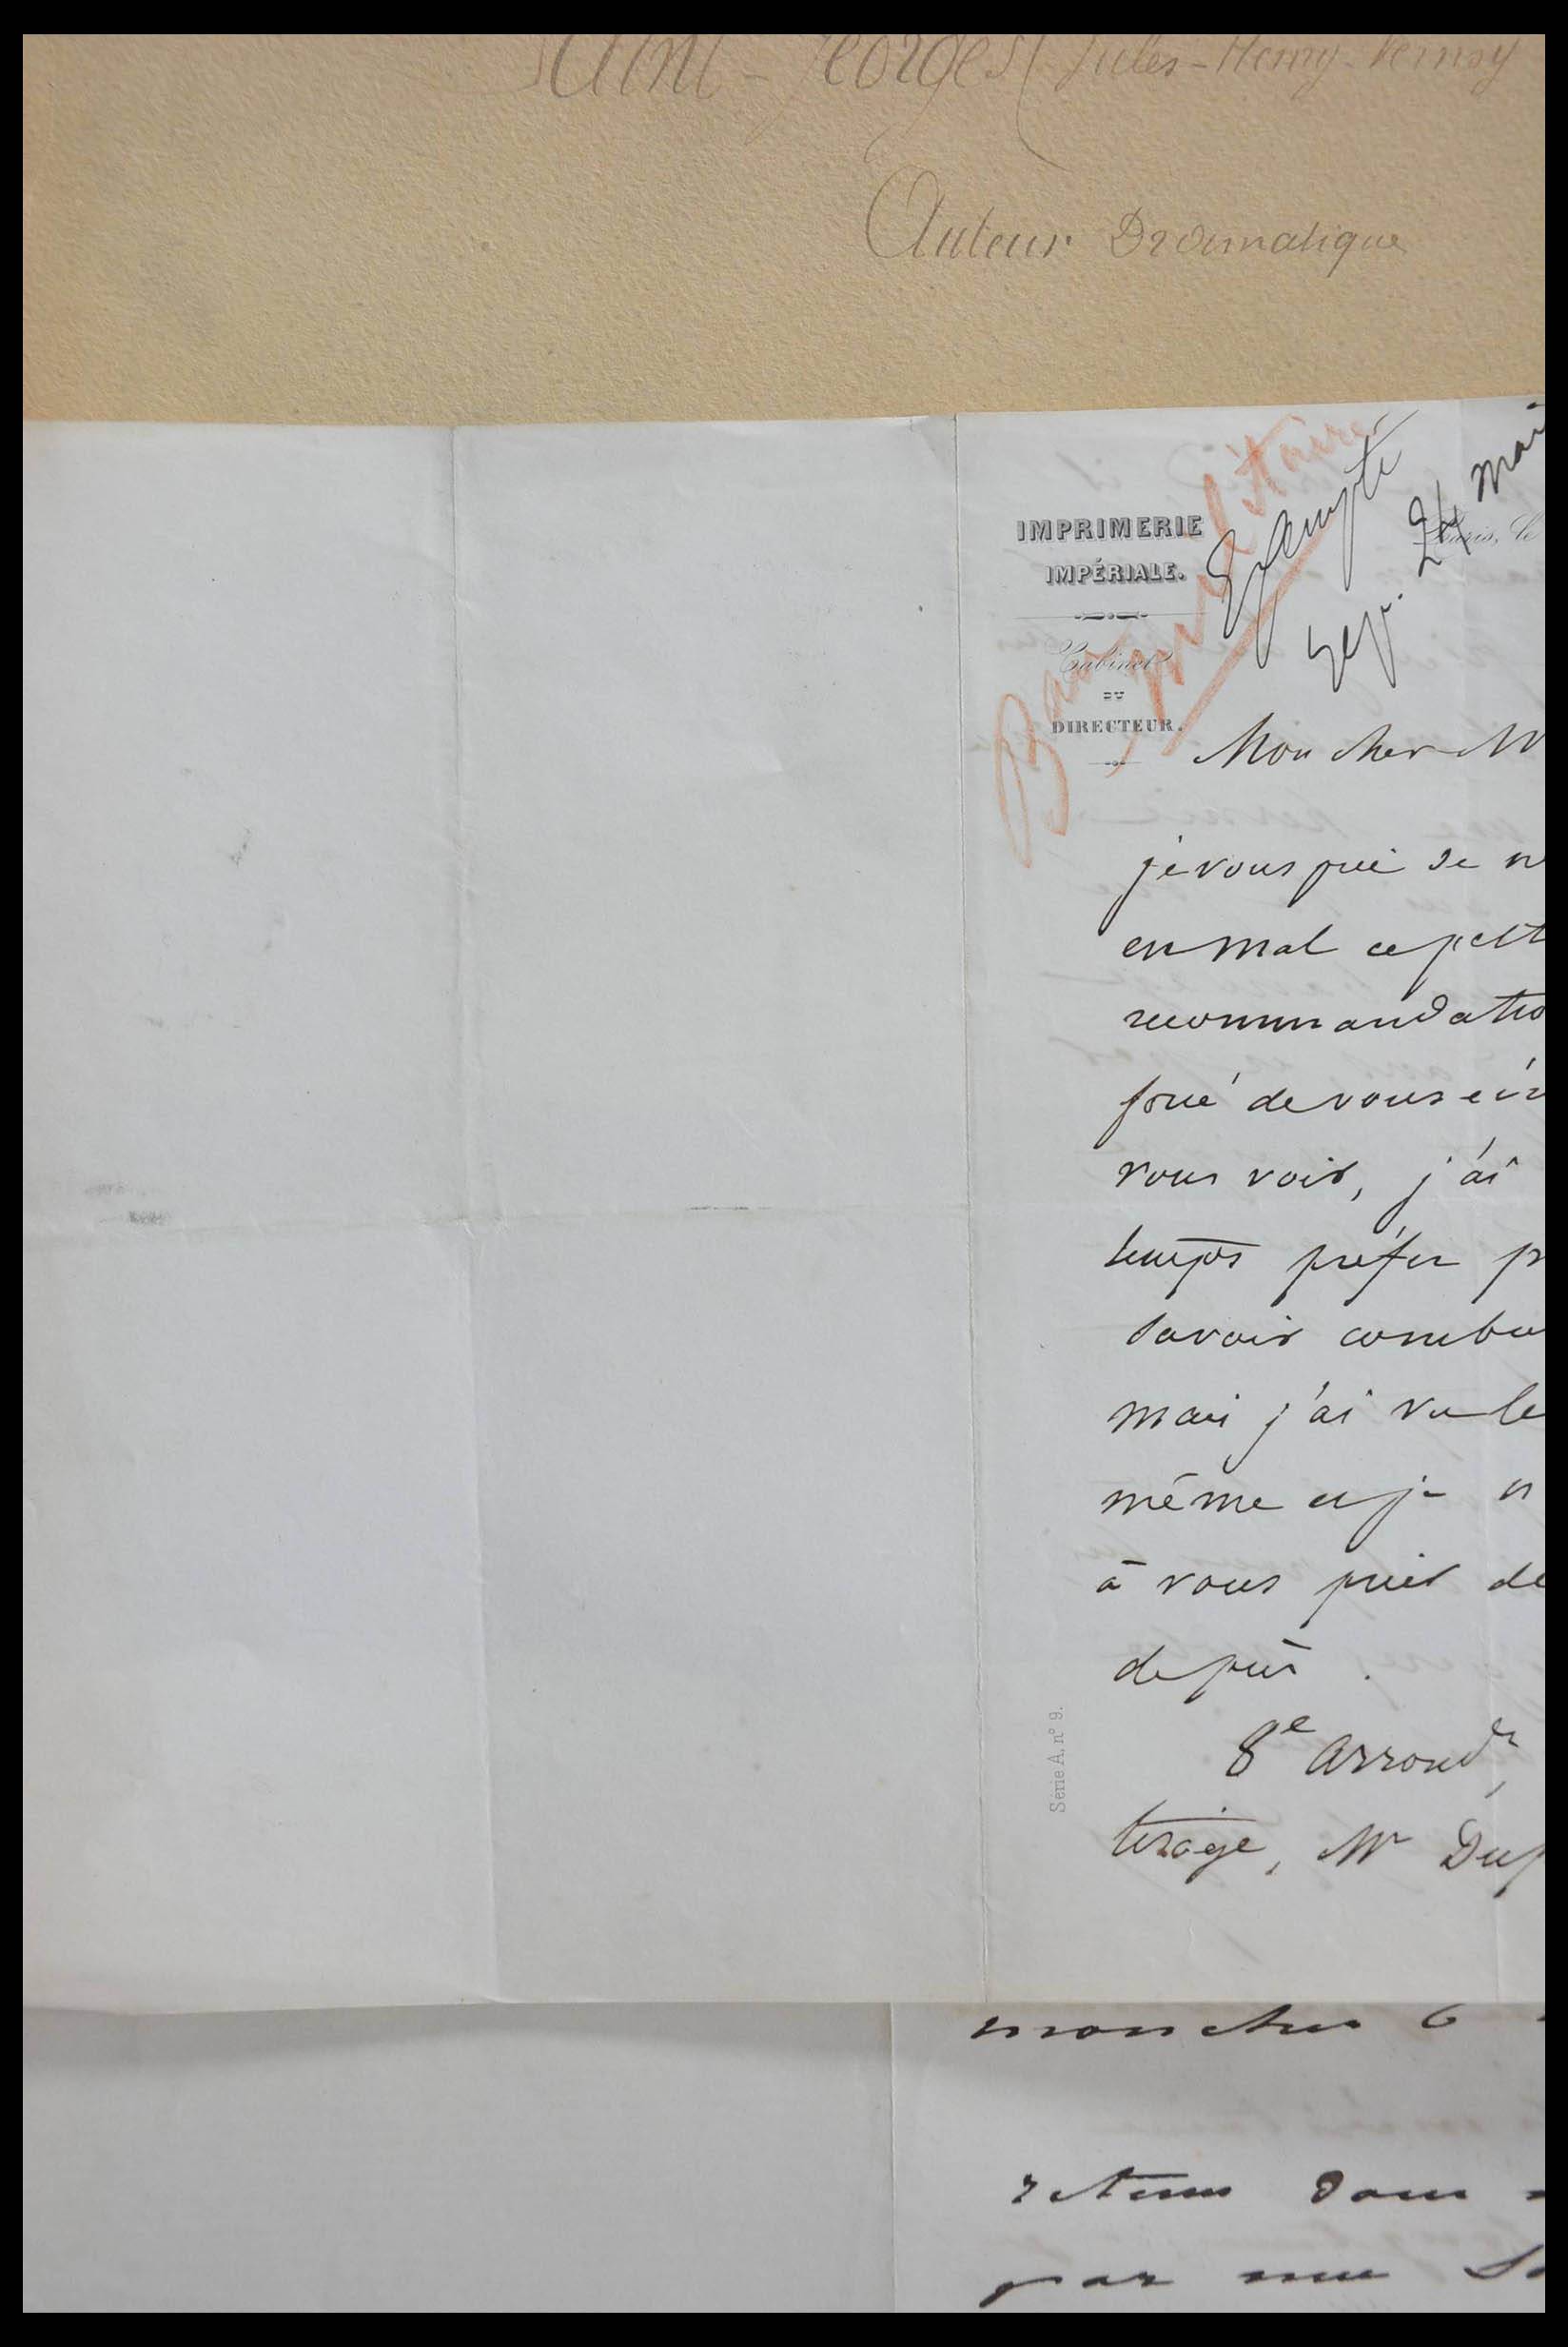 Saint-Georges (Jules-Henry-Vernoy
Auteur Dramatique
IMPRIMERIE
IMPÉRIALE.
Cabinet
DU
DIRECTEUR.
Exempte
Rep. 24 mai
Paris, le
Mon cher M
je vous prie de n
en mal ce petit
recommandatio
forcé de vous écr
vous voir, j'ai
temps
savoir combie
mais j'ai vu le
même et je n
à vous prier de
depuis.
8e Arrondt,
tirage, Mr Dup
Série A. n° 9.
mon cher
retenu dans
par une